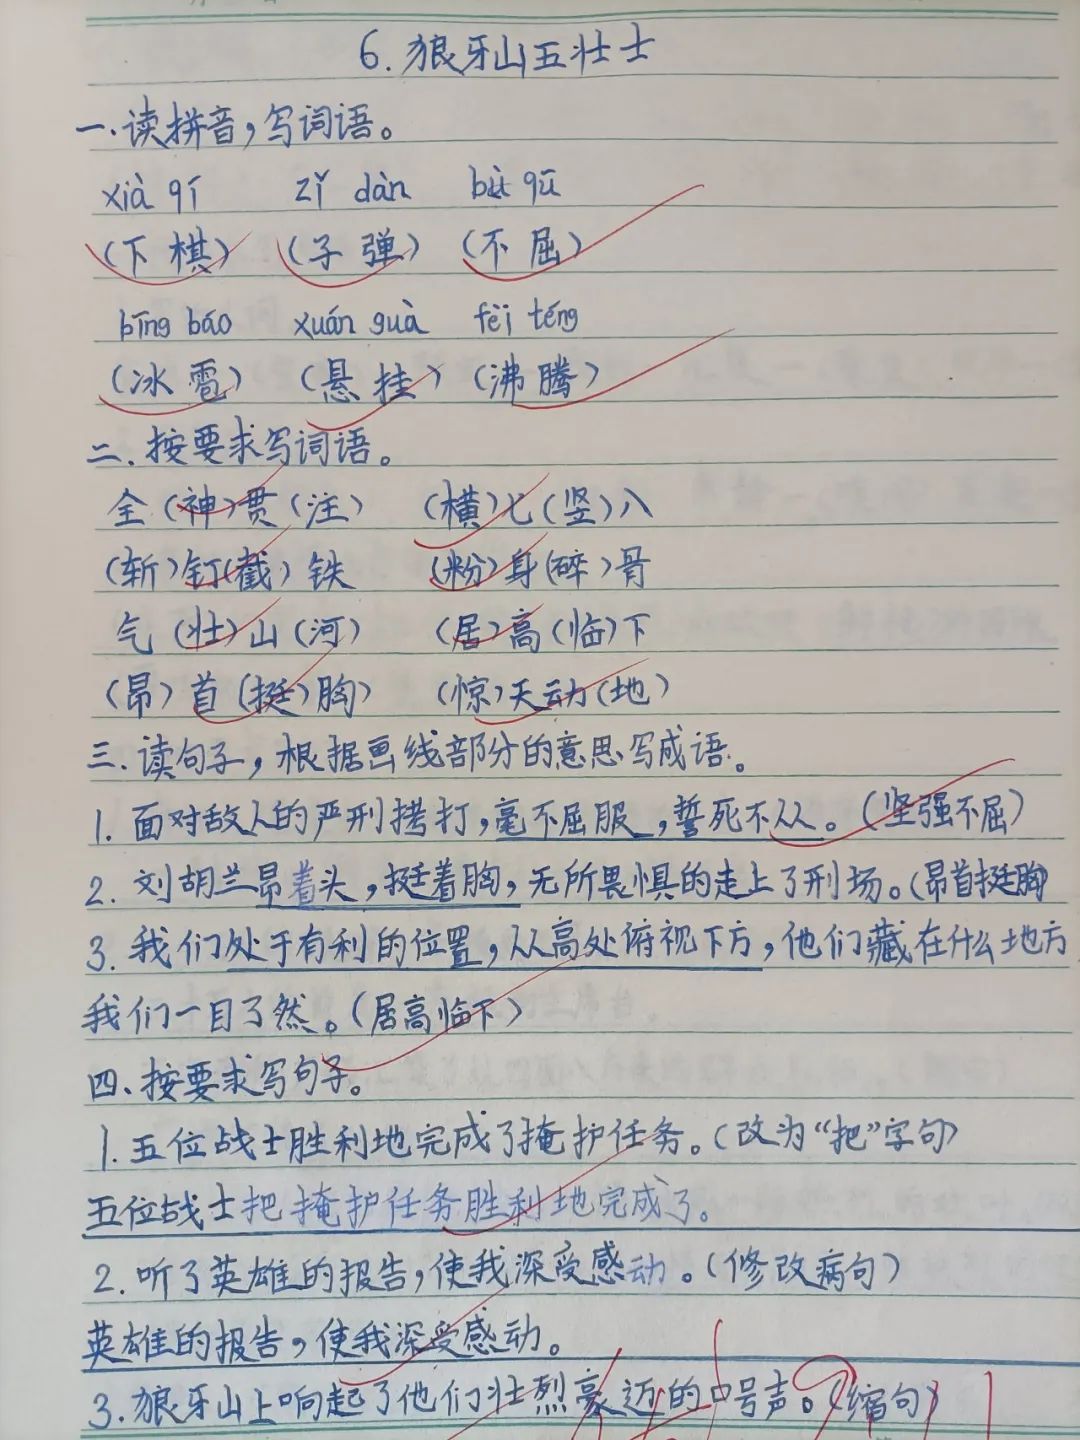 6.狼牙山五壮士
一.读拼音,写词语。
xià qí zǐ dàn bù qū
(下棋) (子弹) (不屈)
bīng báo xuán guà fèi téng
(冰雹) (悬挂) (沸腾)
二.按要求写词语。
全(神)贯(注) (横)七(竖)八
(斩)钉(截)铁 (粉)身(碎)骨
气(壮)山(河) (居)高(临)下
(昂)首(挺)胸) (惊)天动(地)
三.读句子,根据画线部分的意思写成语。
1.面对敌人的严刑拷打,毫不屈服,誓死不从。(坚强不屈)
2.刘胡兰昂着头,挺着胸,无所畏惧的走上了刑场。(昂首挺胸
3.我们处于有利的位置,从高处俯视下方,他们藏在什么地方
我们一目了然。(居高临下)
四.按要求写句子。
1.五位战士胜利地完成了掩护任务。(改为“把”字句)
五位战士把掩护任务胜利地完成了。
2.听了英雄的报告,使我深受感动。(修改病句)
英雄的报告,使我深受感动。
3.狼牙山上响起了他们壮烈豪迈的口号声。(缩句)